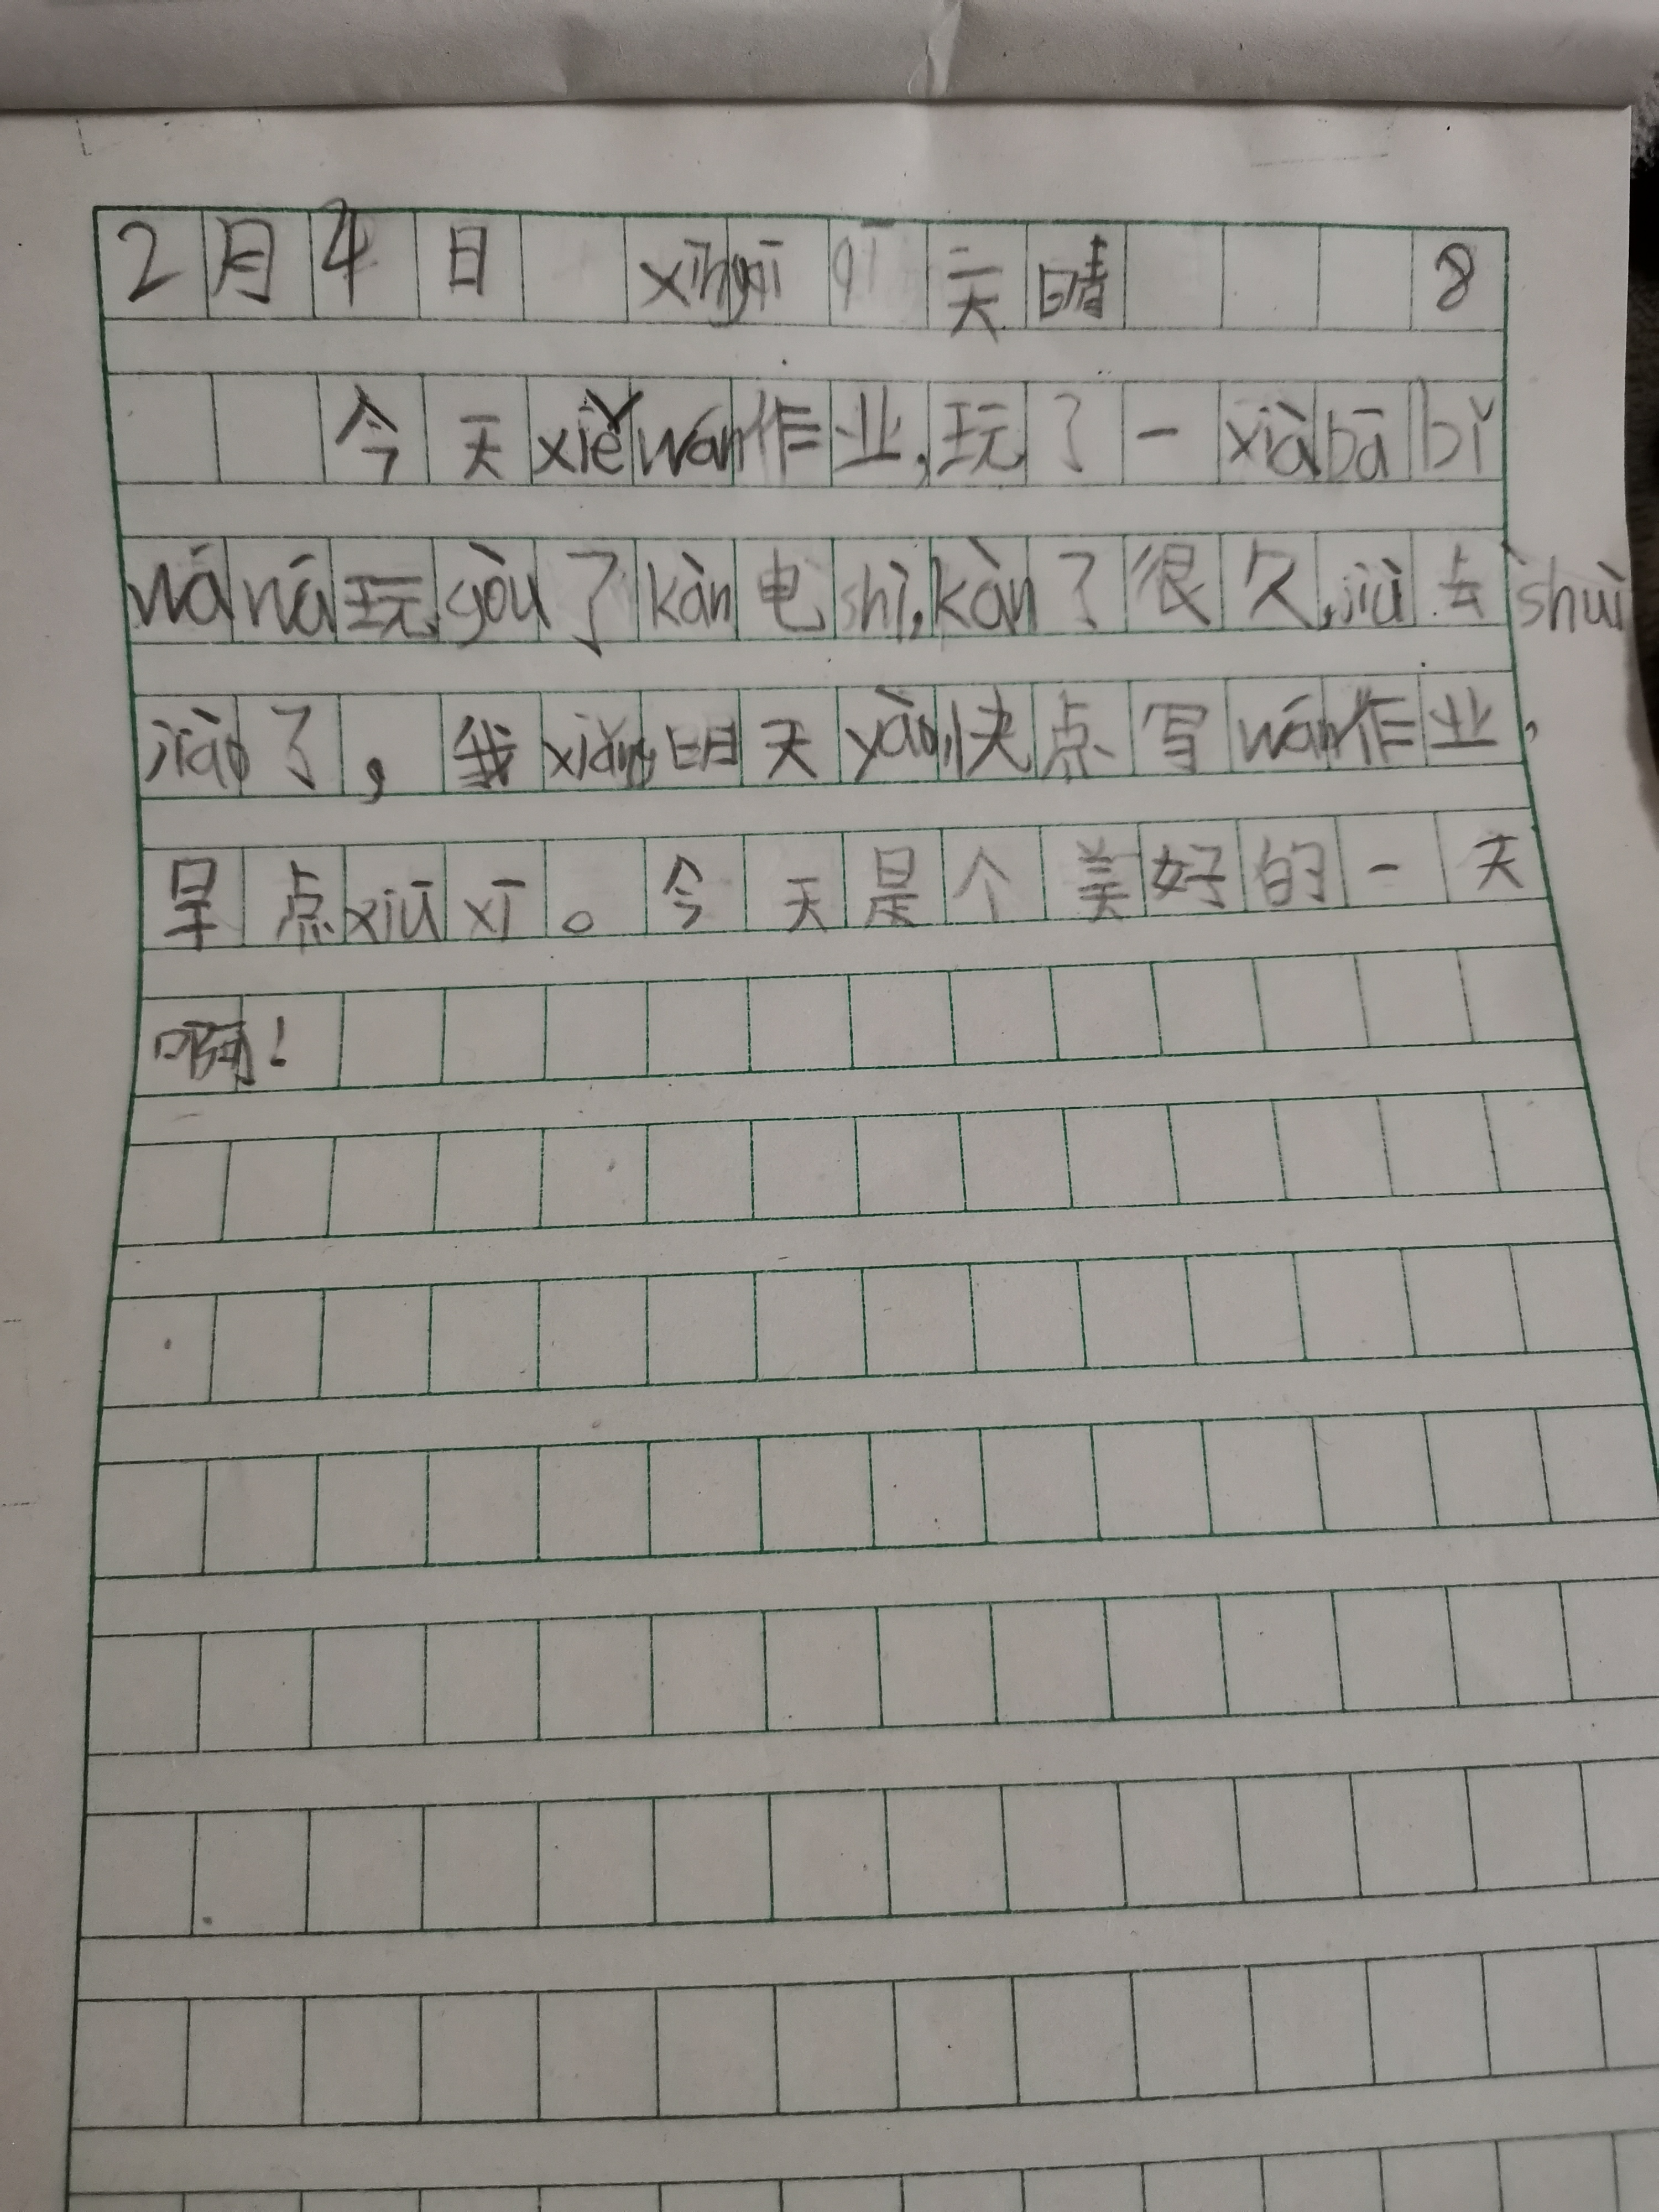 2月4日 xīngqī 天晴 8
今天xiěwán作业,玩了一xiàbābǐ
wáná玩,gòu了kàn电shì,kàn了很久,jiù去shuì
jiào了,我xiǎng明天yào快点写wán作业,
早点xiūxī。今天是个美好的一天
啊!